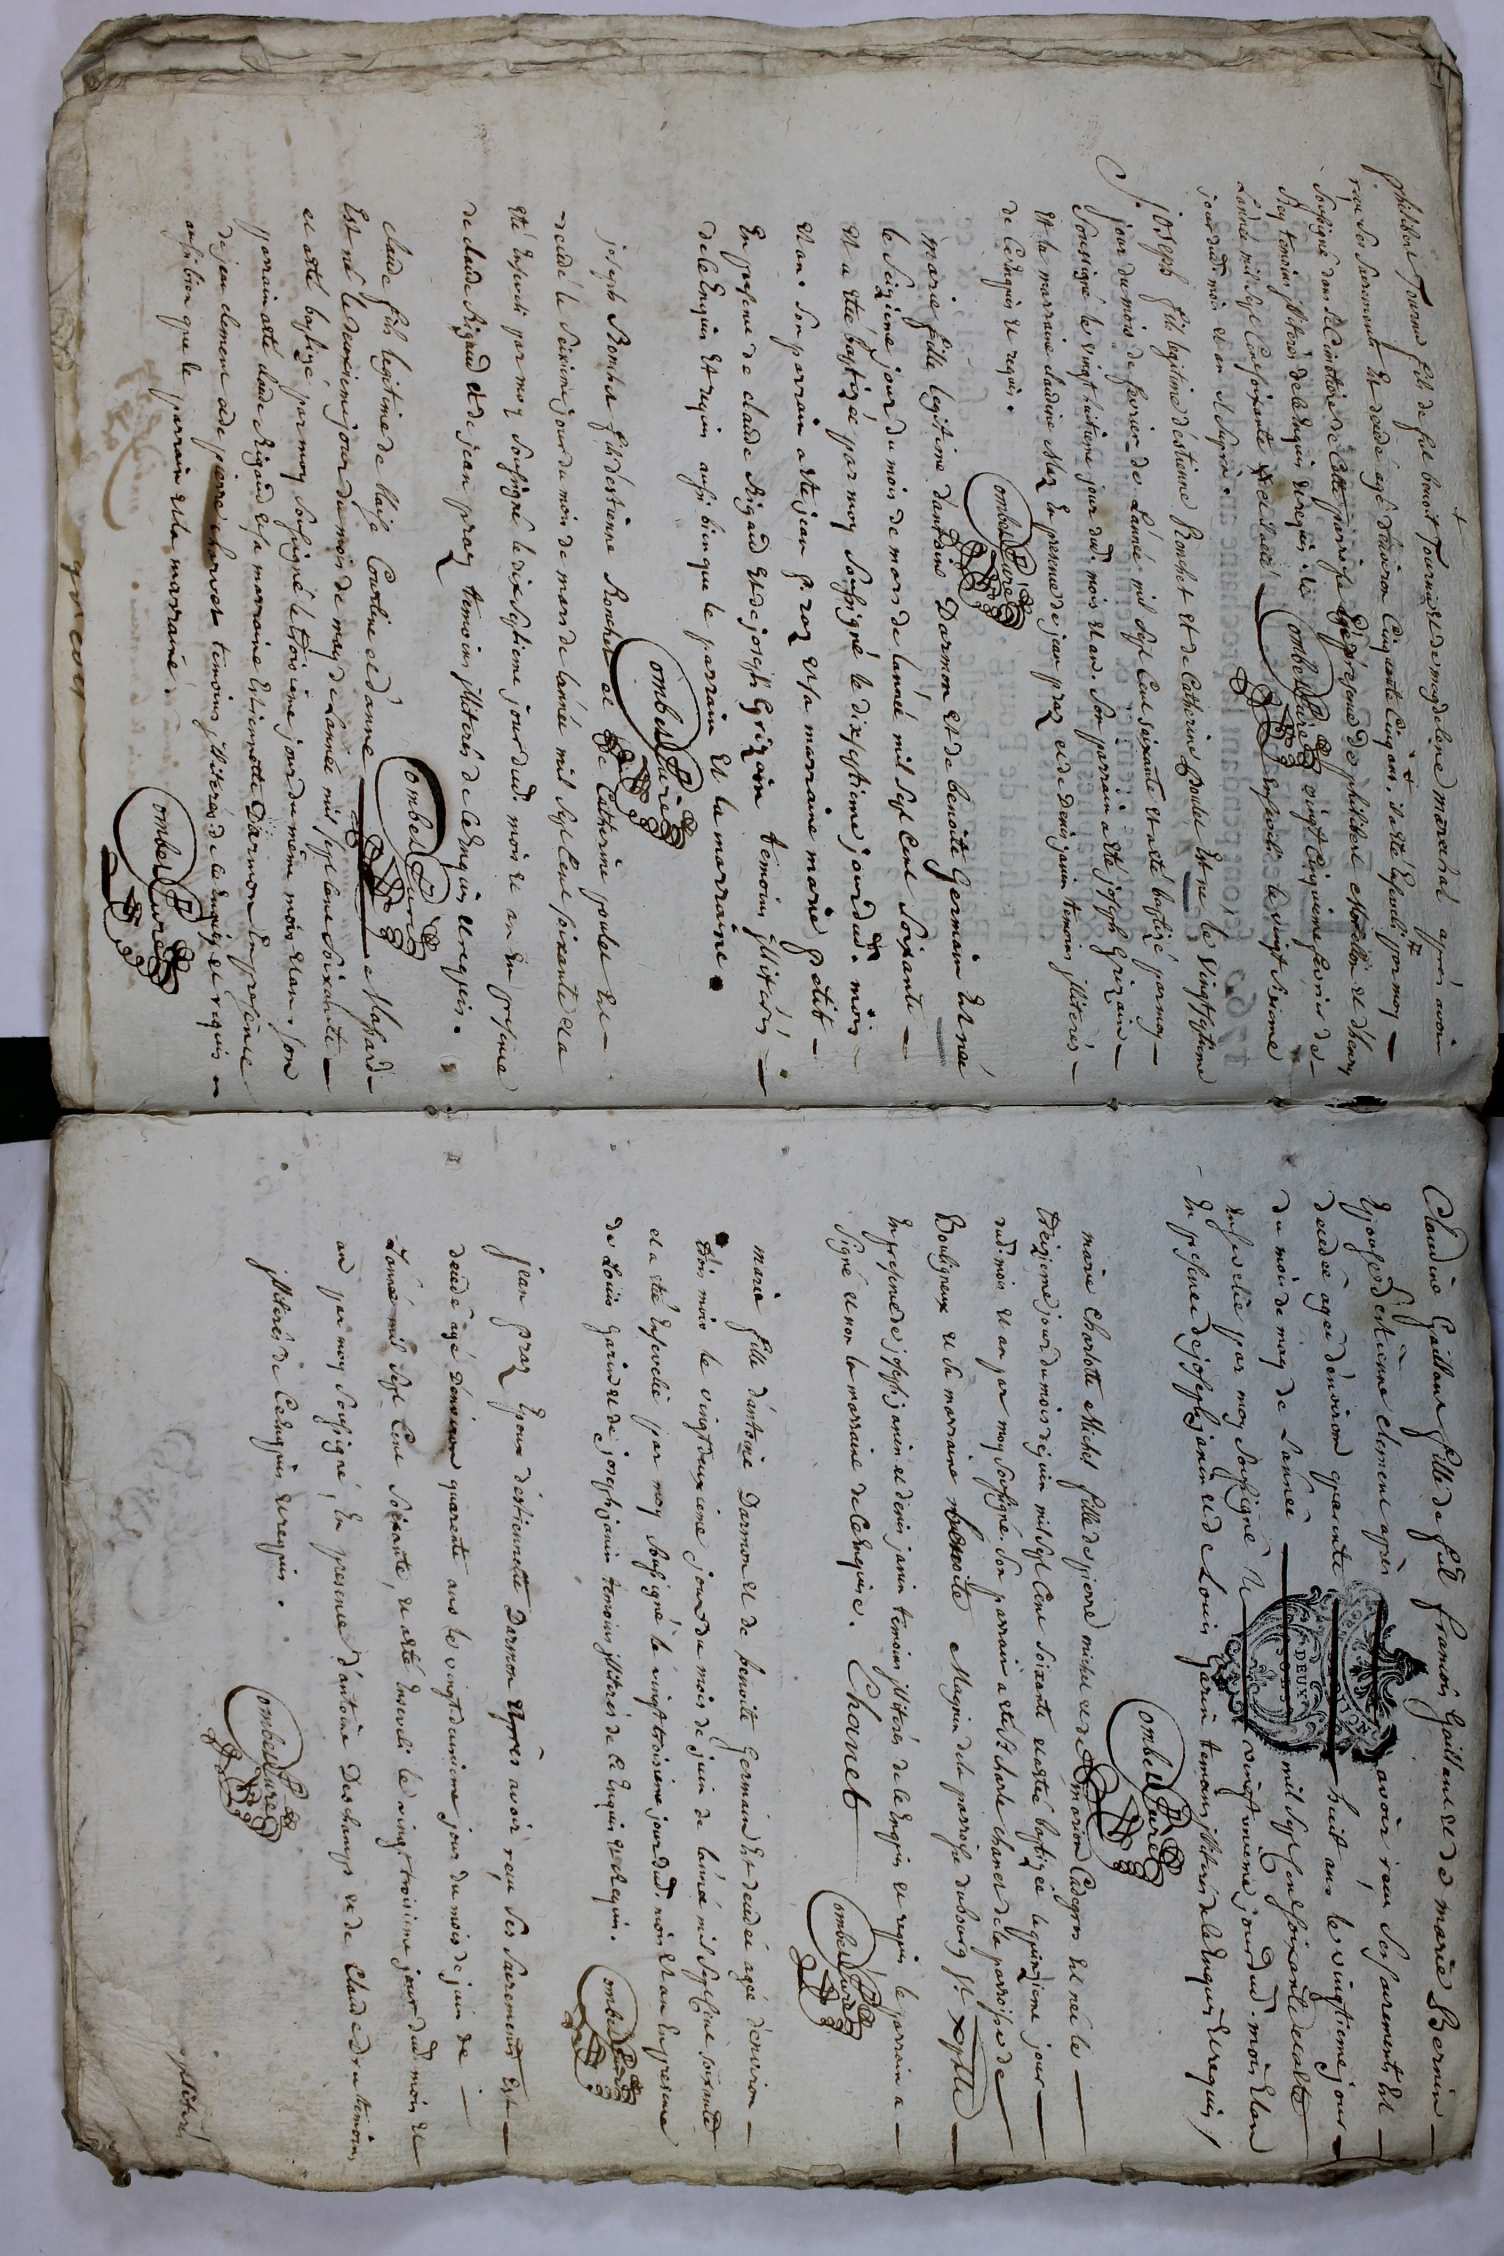 philibert fournier fils de feu benoit fournier et de magdeleine marechal apres avoir
reçu ses sacrements est decedé agé d'environ cinquante cinq ans, a eté enseveli par moy
soussigné dans le cimetiere de cette parroisse en presence de philibert Morellon et d'henry
Rey temoins illiterés de ce enquis et requis le vingt cinquieme fevrier de
L'année mil sept cent soixante et enseveli le vingt sixieme
jour dud. mois et an et susdits.
Combet Curé
joseph fils legitime d'estienne Ponchet et de Catherine poulet est né le vingt septieme
jour du mois de fevrier de L'année mil sept cent soixante et a eté baptizé par moy
soussigné le vingt huitieme jour dud. mois et an. son parrain a eté joseph Grizain
et sa marraine claudine Alez en presence de jean praz et de Denis janin temoins illiterés
de ce enquis et requis.
Combet Curé
Marie fille legitime d'antoine Darmon et de benoite Germain est née
le seizieme jour du mois de mars de L'année mil sept cent soixante
et a eté baptizée par moy soussigné le dix septieme jour dud. mois
et an. son parrain a eté jean praz et sa marraine marie petit
En presence de claude Rigaud et de joseph Grizain temoins illiterés
de ce Enquis et requis aussi bien que le parrain et la marraine.
Combet Curé
joseph Ponchet fils d'estienne Ponchet et de Catherine poulet est
decedé le seizieme jour du mois de mars de L'année mil sept cent soixante et a
eté enseveli par moy soussigné le dix septieme jour dud. mois et an en presence
de claude Rigaud et de jean praz temoins illiterés de ce Enquis et requis.
Combet Curé
claude fils legitime de blaise et d'anne
Est né le deuxieme jour du mois de may de L'année mil sept cent soixante
et a eté baptizé par moy soussigné le troisieme jour du même mois et an. son
parrain a eté claude Rigaud et sa marraine Estiennette Darmon En presence
de jean clement et de pierre temoins illiterés de ce enquis et requis
aussi bien que le parrain et la marraine.
Combet Curé
Claudine Gaillant fille de feu françois Gaillant et de marie Bernin
Epouse d'estienne clement après avoir reçu ses sacrements Est
decedée agée d'environ quarante huit ans le vingtieme jour
du mois de may de L'année mil sept cent soixante et a eté
ensevelie par moy soussigné le vingt unieme jour dud. mois et an
En presence de joseph janin et de Louis Garin temoins illiterés de ce Enquis et requis
DEUX SOLS
Combet Curé
marie charlotte Michel fille de pierre michel et de marion Cadegros est née le
treizieme jour du mois de juin mil sept cent soixante et a eté baptizée le quinzieme jour
dud. mois et an par moy soussigné. son parrain a eté charle chanet de la parroisse de
Bouligneux et sa marraine benoite Magnin de la parroisse du bourg st.
En presence de joseph janin et denis janin temoins illiterés de ce enquis et requis le parrain a
signé et non la marraine de ce enquise. Chanet
Combet Curé
marie fille d'antoine Darmon et de benoite Germain Est decedée agée d'environ
trois mois le vingt deuxieme jour du mois de juin de L'année mil sept cent soixante
et a eté Ensevelie par moy soussigné le vingt troisieme jour dud. mois et an En presence
de Louis Garin et de joseph janin temoins illiterés de ce Enquis et requis.
Combet Curé
jean praz Epoux d'estiennette Darmon Apres avoir reçu ses sacrements Est
decedé agé d'environ quarante ans le vingt deuxieme jour du mois de juin de
L'année mil sept cent soixante, et a eté Enseveli le vingt troisieme jour dud. mois et
an par moy soussigné, En presence d'antoine Deschamps et de Claude temoins
illiterés
illiterés de ce Enquis et requis.
Combet Curé